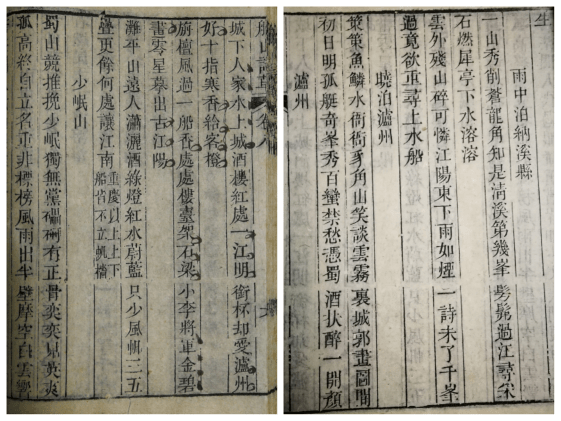 雨中泊納溪縣
一山秀削蒼龍角知是清溪第幾峯髣髴過江尋采
石燃犀亭下水溶溶
雲外殘山碎可憐江陽東下雨如煙二詩未了千峯
過竟欲重尋上水船
曉泊瀘州
筴筴魚鱗水衙衙豸角山笑談雲霧裏城郭畫圖間
初日明孤艇奇峯秀百蠻禁愁憑蜀酒狀醉一開顏
瀘州
船山詩草 卷八
城下人家水上城酒樓紅處一江明銜杯却愛瀘州
好十指寒香給客橙
檀風過一船香處處樓臺架石梁小李將軍金碧
畫零星摹出古江陽
灘平山遠人瀟灑酒綠燈紅水蔚藍只少風㠶三五
疊更何處讓江南 重慶以上上下船皆不立帆檣
少岷山
蜀山競推挽少岷獨無黨礧砢有正骨奕奕見英爽
孤高終自立名重非標榜風雨出半壁摩空白雲響